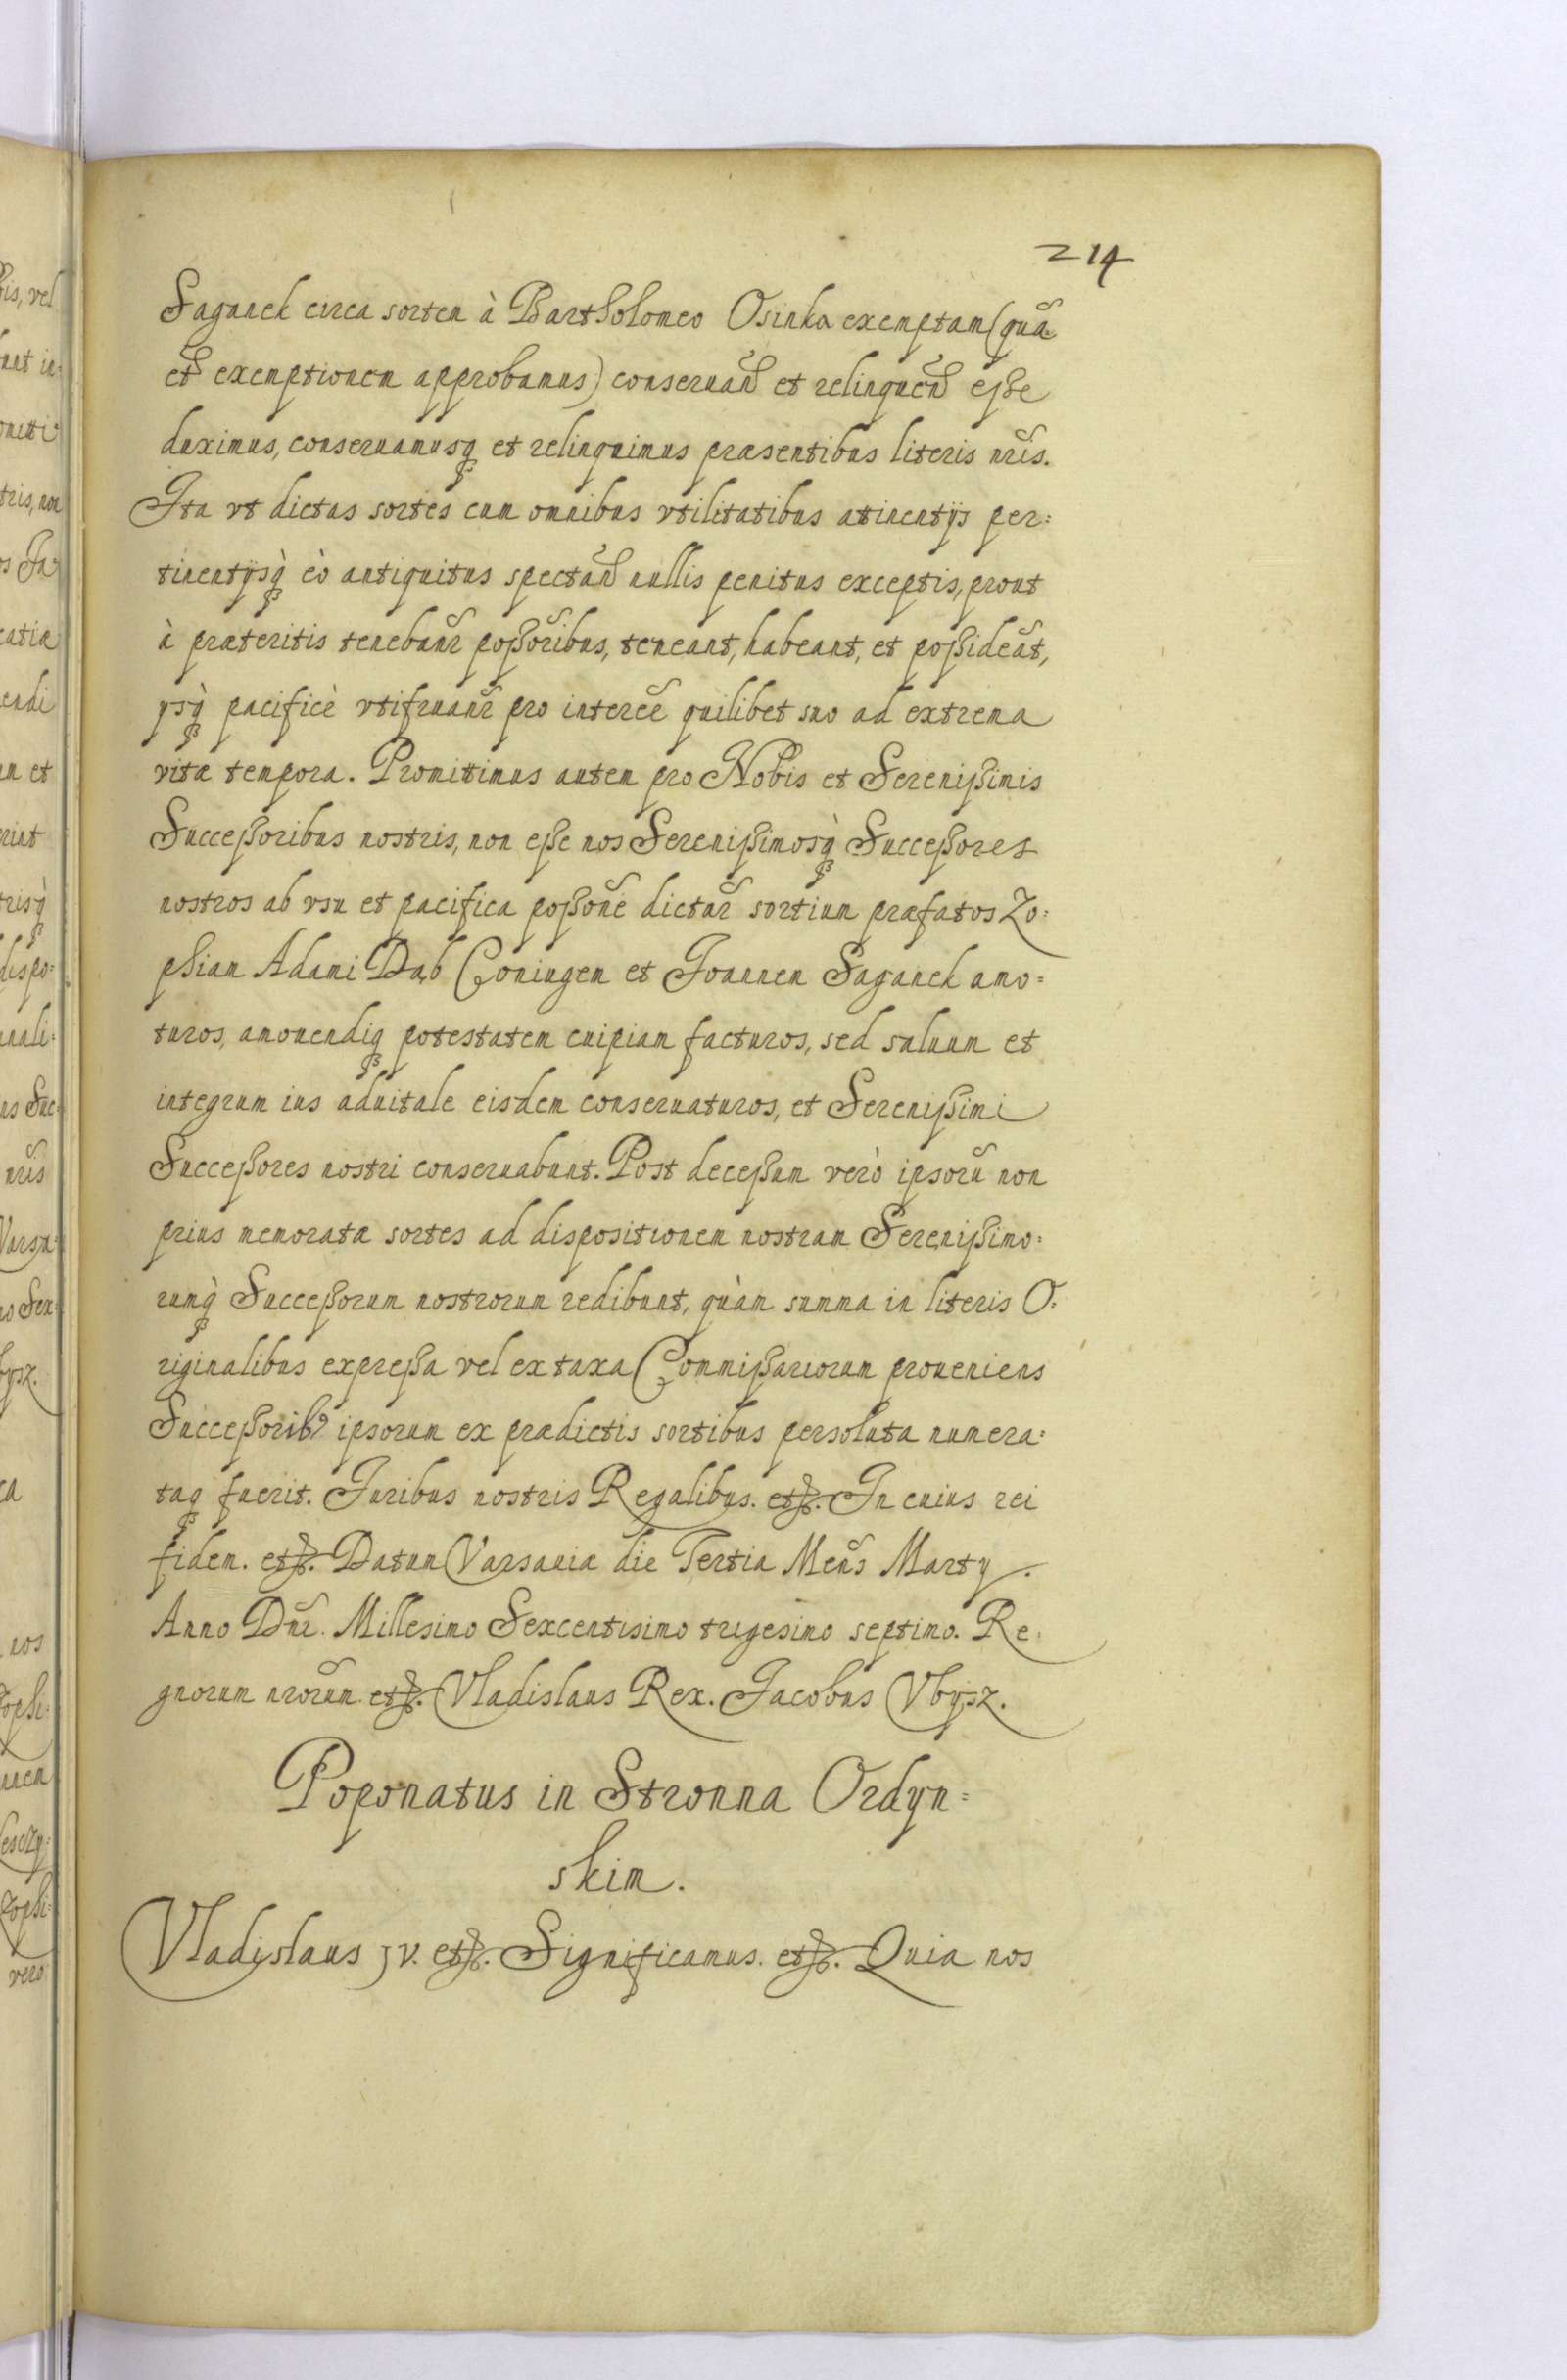 214
Saganek circa sortem à Bartholomeo Osinka exemptam (quã
et exemptionem approbamus) conseruañd et relinqueñd eße
duximus, conseruamusq́ et relinquimus præsentibus literis nr̃is.
Ita vt dictas sortes cum omnibus vtilitatibus atinentijs per:
tinentijsq̀ eò antiquitus spectañd nullis penitus exceptis, prout
à præteritis tenebañr poßor̃ibus, teneant, habeant, et poßideãt,
ysq̀ pacificè vtifruañr pro interẽe quilibet suo ad extrema
vitæ tempora. Promittimus autem pro Nobis et Serenißimis
Succeßoribus nostris, non eße nos Serenißimosq̀ Succeßores
nostros ab vsu et pacifica poßoñe dictar̃ sortium præfatos Zo:
phiam Adami Dąb Coningen et Joannem Saganek amo:
turos, amouendiq potestatem cuipiam facturos, sed saluum et
integrum ius aduitale eisdem conseruaturos, et Serenißimi
Succeßores nostri conseruabunt. Post deceßum verò ipsorũ non
prius memoratæ sortes ad dispositionem nostram Serenißimo:
rumq̀ Succeßorum nostrorum redibunt, quàm summa in literis O:
riginalibus expreßa vel ex taxa Commißariorum proueniens
Succeßorib9 ipsorum ex prædictis sortibus persoluta numera:
taq fuerit. Juribus nostris Regalibus. etc. In cuius rei
fidem. etc. Datum Varsauiæ die Tertia Meñs Marty.
Anno Dñi. Millesimo Sexcentisimo trigesimo septimo. Re:
gnorum nror̃um etc. Vladislaus Rex. Jacobus Vbysz.
Poponatus in Stronna Ordyn:
skim.
Vladislaus IV. etc. Significamus. etc. Quia nos